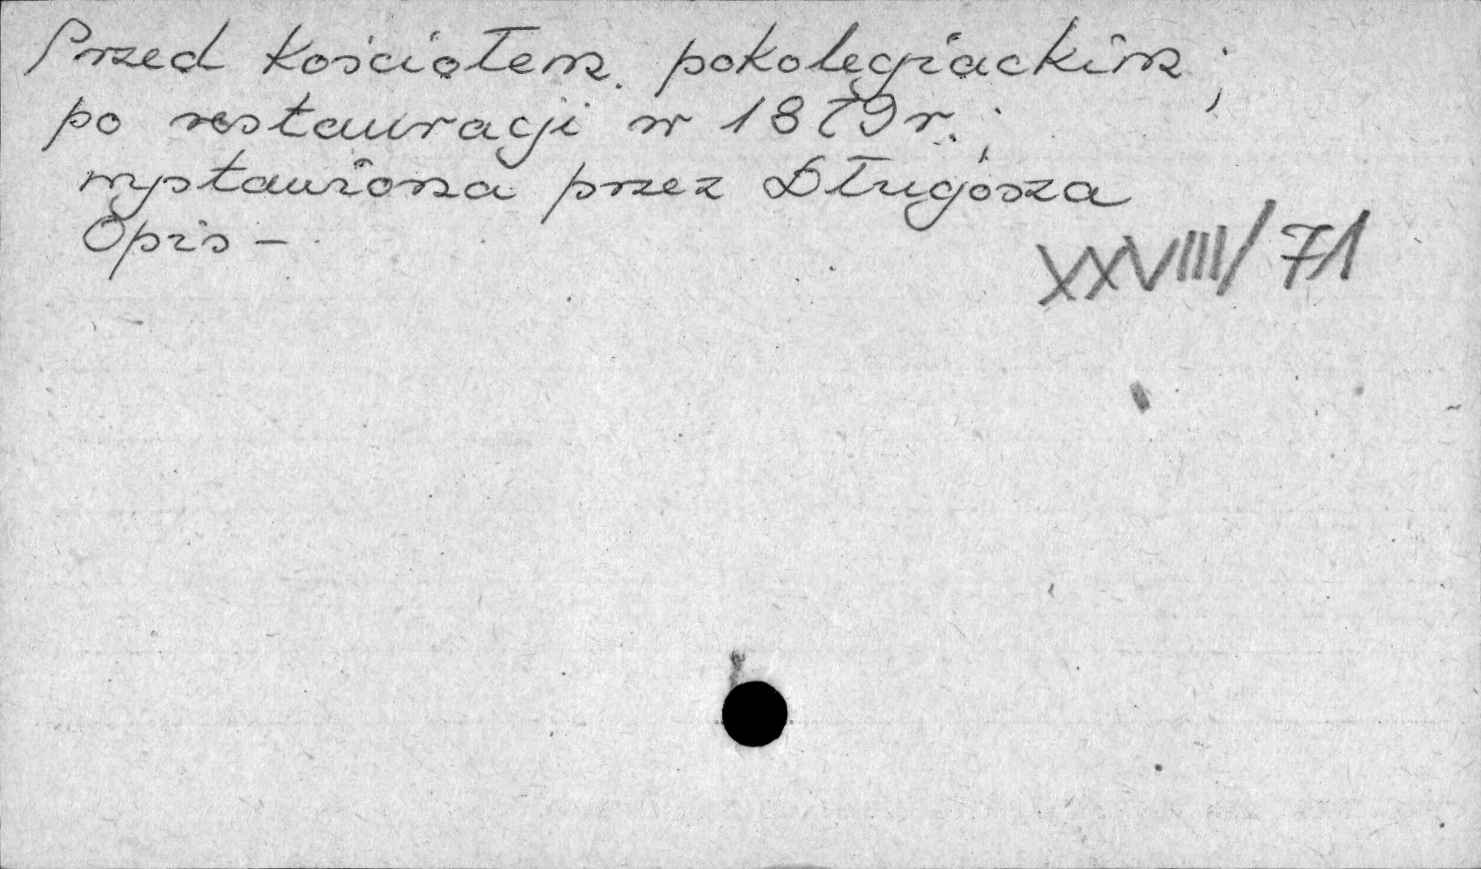 Przed kościołem pokolegiackim;
po restauracji w 1879 r.;
wystawiona przez Długosza
Opis –
XXVIII/71